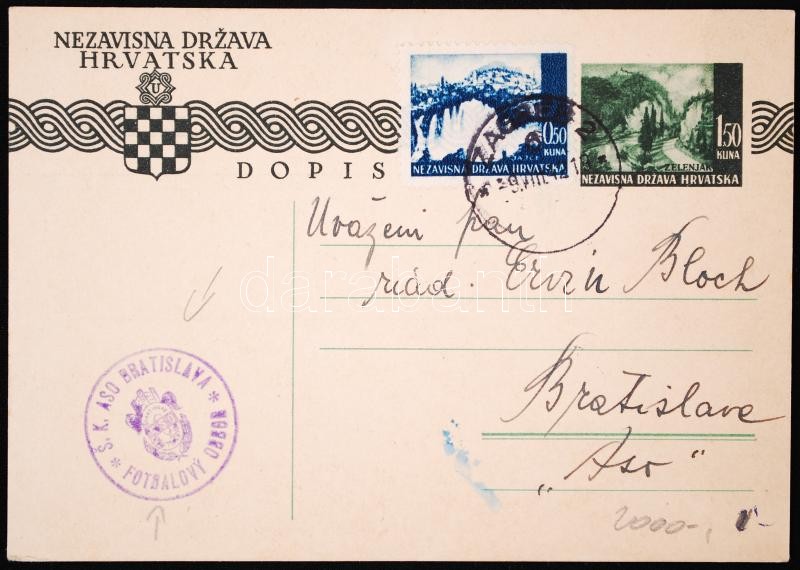 NEZAVISNA DRŽAVA
HRVATSKA
U
DOPIS
0.50
KUNA
JAJCE
NEZAVISNA DRŽAVA HRVATSKA
1.50
KUNA
ZELENJAK
NEZAVISNA DRŽAVA HRVATSKA
ZAGREB 2
Uvážení pan
riad. Ervín Bloch
Bratislava
„Aso"
S. K. ASO BRATISLAVA
FOTBALOVÝ ODBOR
darabanth
2000-,